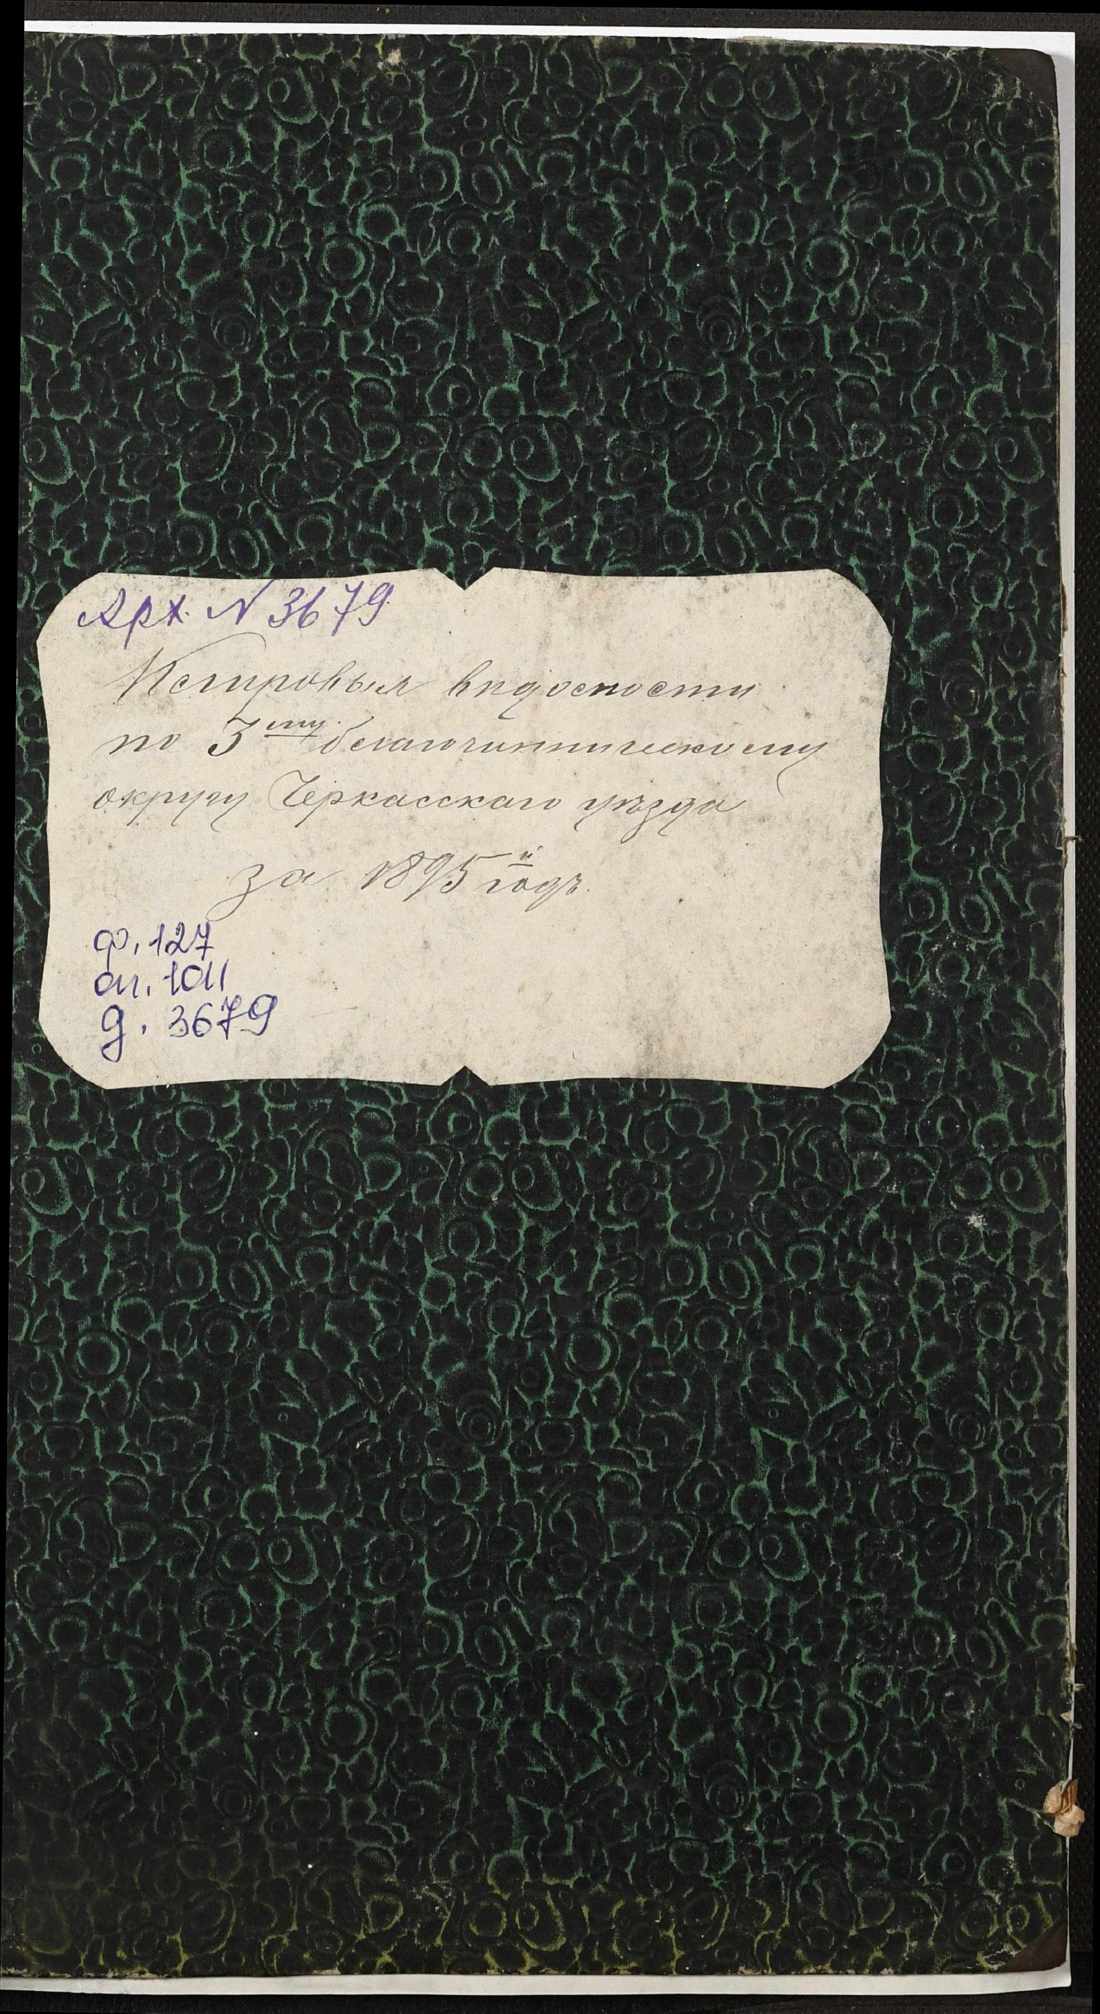 Арх. № 3679
Клировыя вѣдомости
по 3ему благочинническому
округу Черкасскаго уѣзда
за 1895й годъ.
ф. 127
оп. 1011
д. 3679